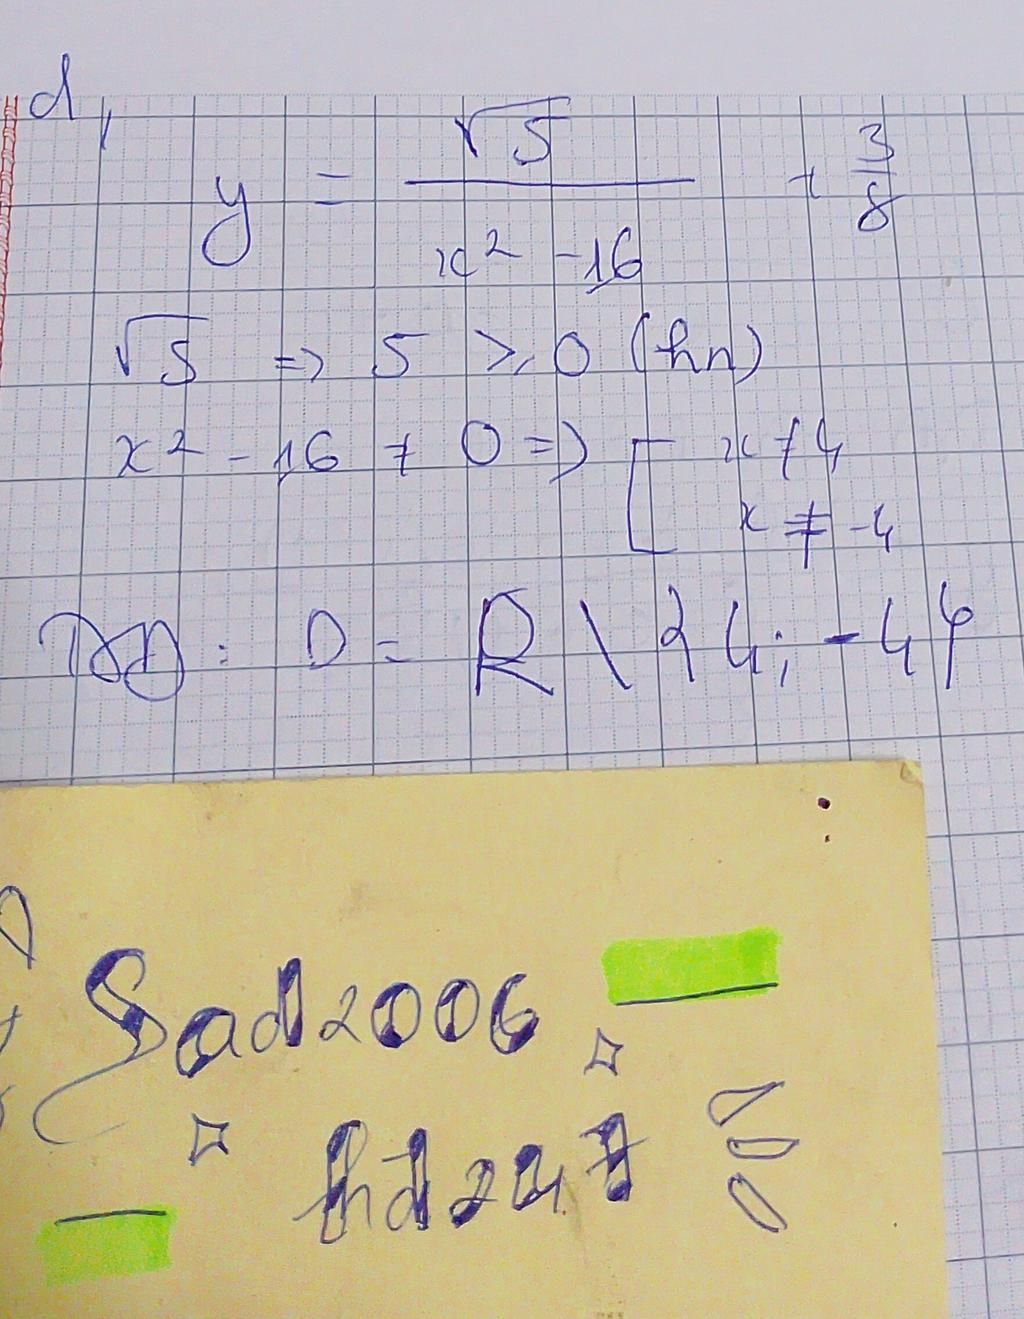 d,
y = √5 / x² - 16 + 3/8
√5 => 5 ≥ 0 (hn)
x² - 16 ≠ 0 => [ x ≠ 4
x ≠ -4
TXĐ : D = R \ {4; -4}
Sad2006
hd247